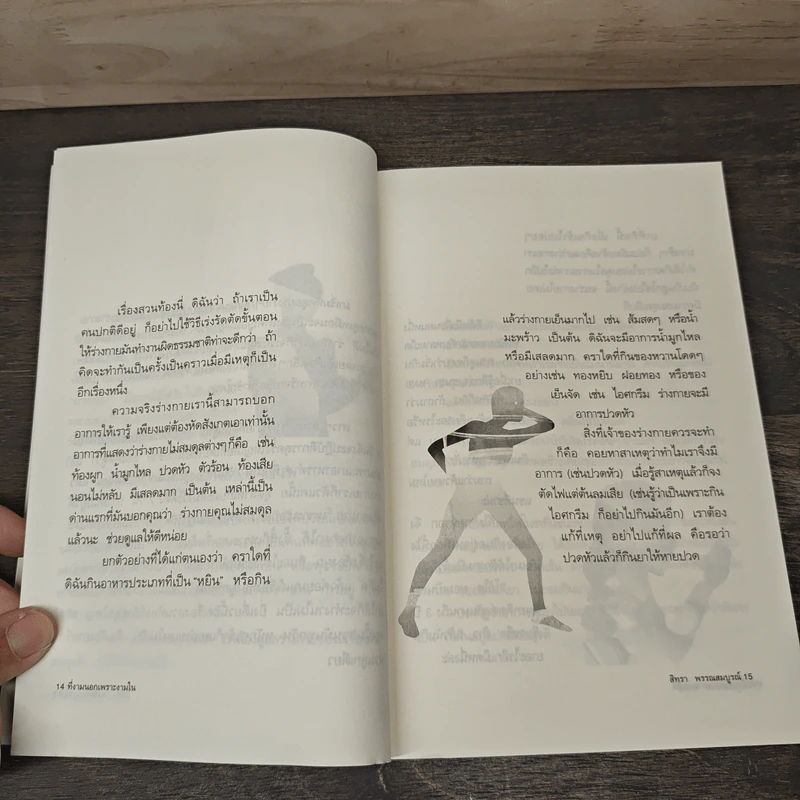 เรื่องสวนท้องนี่ ดิฉันว่า ถ้าเราเป็น
คนปกติดีอยู่ ก็อย่าไปใช้วิธีเร่งรัดตัดขั้นตอน
ให้ร่างกายมันทำงานผิดธรรมชาติท่าจะดีกว่า ถ้า
คิดจะทำกันเป็นครั้งเป็นคราวเมื่อมีเหตุก็เป็น
อีกเรื่องหนึ่ง
ความจริงร่างกายเรานี้สามารถบอก
อาการให้เรารู้ เพียงแต่ต้องหัดสังเกตเอาเท่านั้น
อาการที่แสดงว่าร่างกายไม่สมดุลต่างๆ ก็คือ เช่น
ท้องผูก น้ำมูกไหล ปวดหัว ตัวร้อน ท้องเสีย
นอนไม่หลับ มีเสลดมาก เป็นต้น เหล่านี้เป็น
ด่านแรกที่มันบอกคุณว่า ร่างกายคุณไม่สมดุล
แล้วนะ ช่วยดูแลให้ดีหน่อย
ยกตัวอย่างที่ได้แก่ตนเองว่า คราใดที่
ดิฉันกินอาหารประเภทที่เป็น “หยิน” หรือกิน
14 ที่งามนอกเพราะงามใน
แล้วร่างกายเย็นมากไป เช่น ส้มสดๆ หรือน้ำ
มะพร้าว เป็นต้น ดิฉันจะมีอาการน้ำมูกไหล
หรือมีเสลดมาก คราใดที่กินของหวานโดดๆ
อย่างเช่น ทองหยิบ ฝอยทอง หรือของ
เย็นจัด เช่น ไอศกรีม ร่างกายจะมี
อาการปวดหัว
สิ่งที่เจ้าของร่างกายควรจะทำ
ก็คือ คอยหาสาเหตุว่าทำไมเราจึงมี
อาการ (เช่นปวดหัว) เมื่อรู้สาเหตุแล้วก็จง
ตัดไฟแต่ต้นลมเสีย (เช่นรู้ว่าเป็นเพราะกิน
ไอศกรีม ก็อย่าไปกินมันอีก) เราต้อง
แก้ที่เหตุ อย่าไปแก้ที่ผล คือรอว่า
ปวดหัวแล้วก็กินยาให้หายปวด
สิทรา พรรณสมบูรณ์ 15